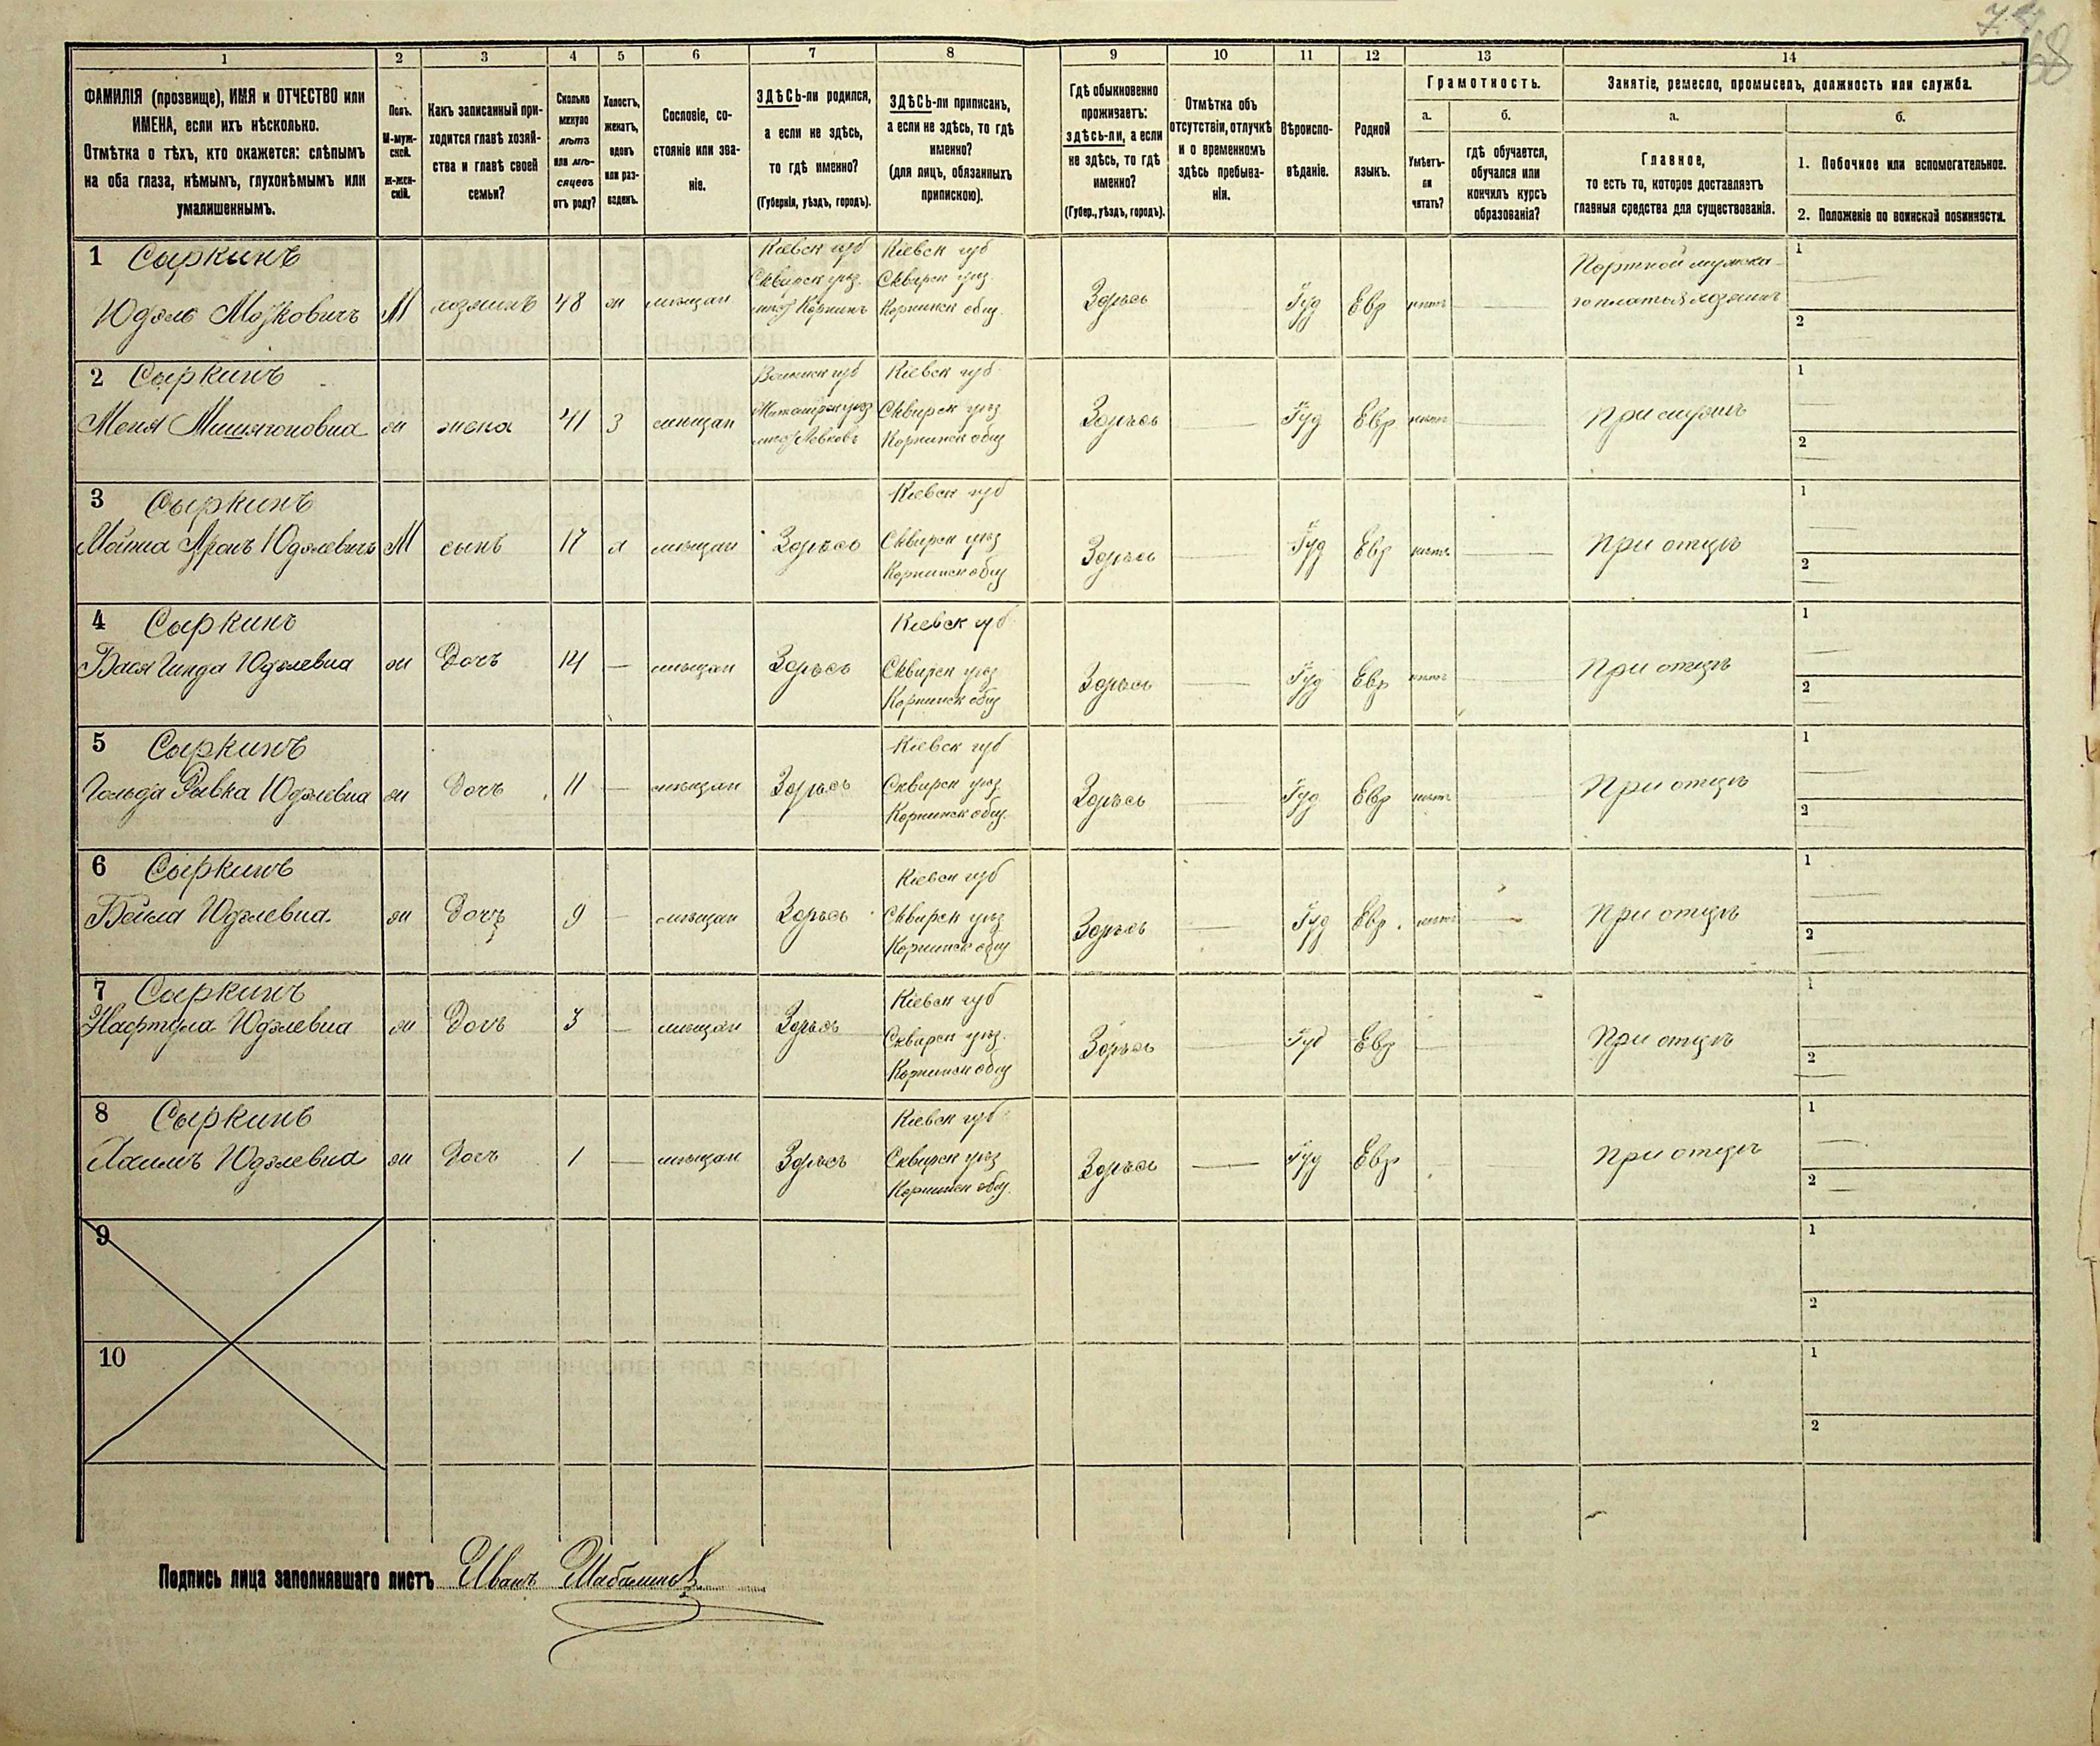 7.
68
1 2 3 4 5 6 7 8 9 10 11 12 13 14
ФАМИЛІЯ (прозвище), ИМЯ и ОТЧЕСТВО или
ИМЕНА, если ихъ нѣсколько.
Отмѣтка о тѣхъ, кто окажется: слѣпымъ
на оба глаза, нѣмымъ, глухонѣмымъ или
умалишеннымъ.
Полъ.
М-муж-
ской.
ж-жен-
скій.
Какъ записанный при-
ходится главѣ хозяй-
ства и главѣ своей
семьи?
Сколько
минуло
лѣтъ
или мѣ-
сяцевъ
отъ роду?
Холостъ,
женатъ,
вдовъ
или раз-
веденъ.
Сословіе, со-
стояніе или зва-
ніе.
ЗДѢСЬ-ли родился,
а если не здѣсь,
то гдѣ именно?
(Губернія, уѣздъ, городъ).
ЗДѢСЬ-ли приписанъ,
а если не здѣсь, то гдѣ
именно?
(для лицъ, обязанныхъ
припискою).
Гдѣ обыкновенно
проживаетъ:
здѣсь-ли, а если
не здѣсь, то гдѣ
именно?
(Губер., уѣздъ, городъ).
Отмѣтка объ
отсутствіи, отлучкѣ
и о временномъ
здѣсь пребыва-
ніи.
Вѣроиспо-
вѣданіе.
Родной
языкъ.
Грамотность.
а.
Умѣетъ-
ли
читать?
б.
гдѣ обучается,
обучался или
кончилъ курсъ
образованія?
Занятіе, ремесло, промыселъ, должность или служба.
а.
Главное,
то есть то, которое доставляетъ
главныя средства для существованія.
б.
1. Побочное или вспомогательное.
2. Положеніе по воинской повинности.
1 Сыркинъ
Юдэль Мошковичъ
М
хозяинъ
48
ж
мѣщан
Кіевск губ
Сквирск уѣз.
Корнинъ
Кіевск губ
Сквирск уѣз
Корнинск общ.
Здѣсь
Іуд
Евр
нѣтъ
Портной мужска-
го платья хозяинъ
1
2
2 Сыркинъ
Меня
ж
жена
41
З
мѣщан
Волынск губ
Житомірск уѣз
Левковъ
Кіевск губ
Сквирск уѣз
Корнинск общ
Здѣсь
Іуд
Евр
нѣтъ
При мужѣ
1
2
3 Сыркинъ
Мойша Аронъ Юдэлевичъ
М
сынъ
17
х
мѣщан
Здѣсь
Кіевск губ
Сквирск уѣз
Корнинск общ
Здѣсь
Іуд
Евр
нѣтъ
При отцѣ
1
2
4 Сыркинъ
Бася Гинда Юдэлевна
ж
Дочь
14
мѣщан
Здѣсь
Кіевск губ
Сквирск уѣз
Корнинск общ
Здѣсь
Іуд
Евр
нѣтъ
При отцѣ
1
2
5 Сыркинъ
Гольда Рывка Юдэлевна
ж
Дочь
11
мѣщан
Здѣсь
Кіевск губ
Сквирск уѣз
Корнинск общ.
Здѣсь
Іуд
Евр
нѣтъ
При отцѣ
1
2
6 Сыркинъ
Бейла Юдэлевна.
ж
Дочь
9
мѣщан
Здѣсь
Кіевск губ
Сквирск уѣз
Корнинск общ
Здѣсь
Іуд
Евр.
нѣтъ
При отцѣ
1
2
7 Сыркинъ
Нафтула Юдэлевна
ж
Дочь
3
мѣщан
Здѣсь
Кіевск губ
Сквирск уѣз.
Корнинск общ
Здѣсь
Іуд
Евр
При отцѣ
1
2
8 Сыркинъ
Хаимъ Юдэлевна
ж
Дочь
1
мѣщан
Здѣсь
Кіевск губ
Сквирск уѣз
Корнинск общ.
Здѣсь
Іуд
Евр
При отцѣ
1
2
9
1
2
10
1
2
Подпись лица заполнявшаго листъ Иванъ